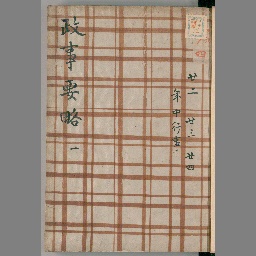 政事要略 一
廿二 廿三 廿四
年中行事